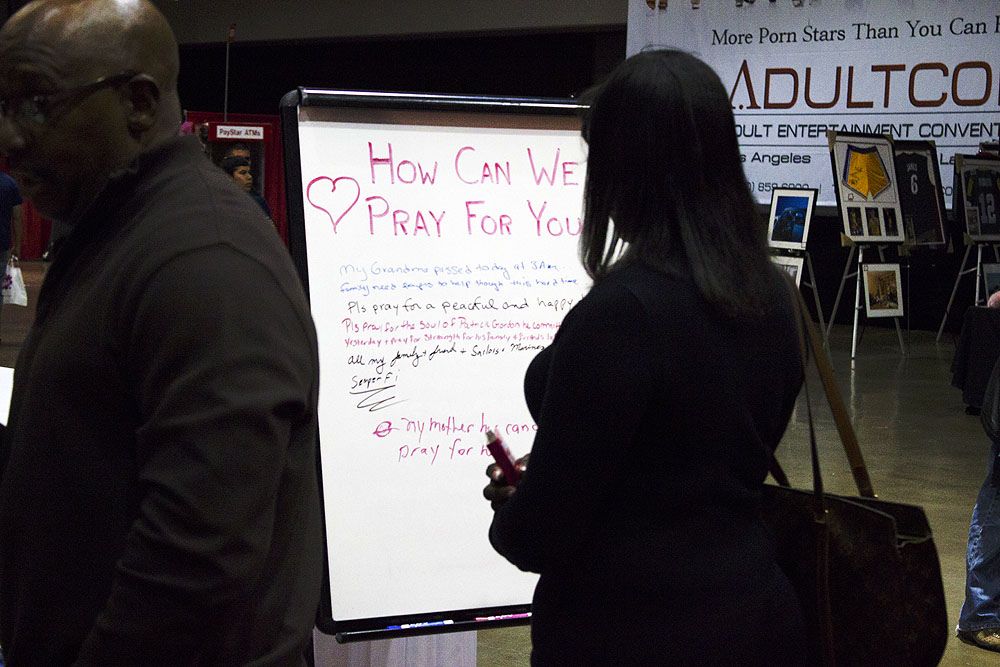 More Porn Stars Than You Can
ADULTCO
DULT ENTERTAINMENT CONVENT
s Angeles
PayStar ATMs
How Can We
Pray For You
My Grandma passed today at 3Am
family need prayers to help though this hard time
Pls pray for a peaceful and happy
Pls pray for the soul of Patrick Gordon he committ
Yesterday + pray for strength for his family +
All my family + friends + Sailors + Marines
Semper Fi
my mother has canc
pray for h
6
12